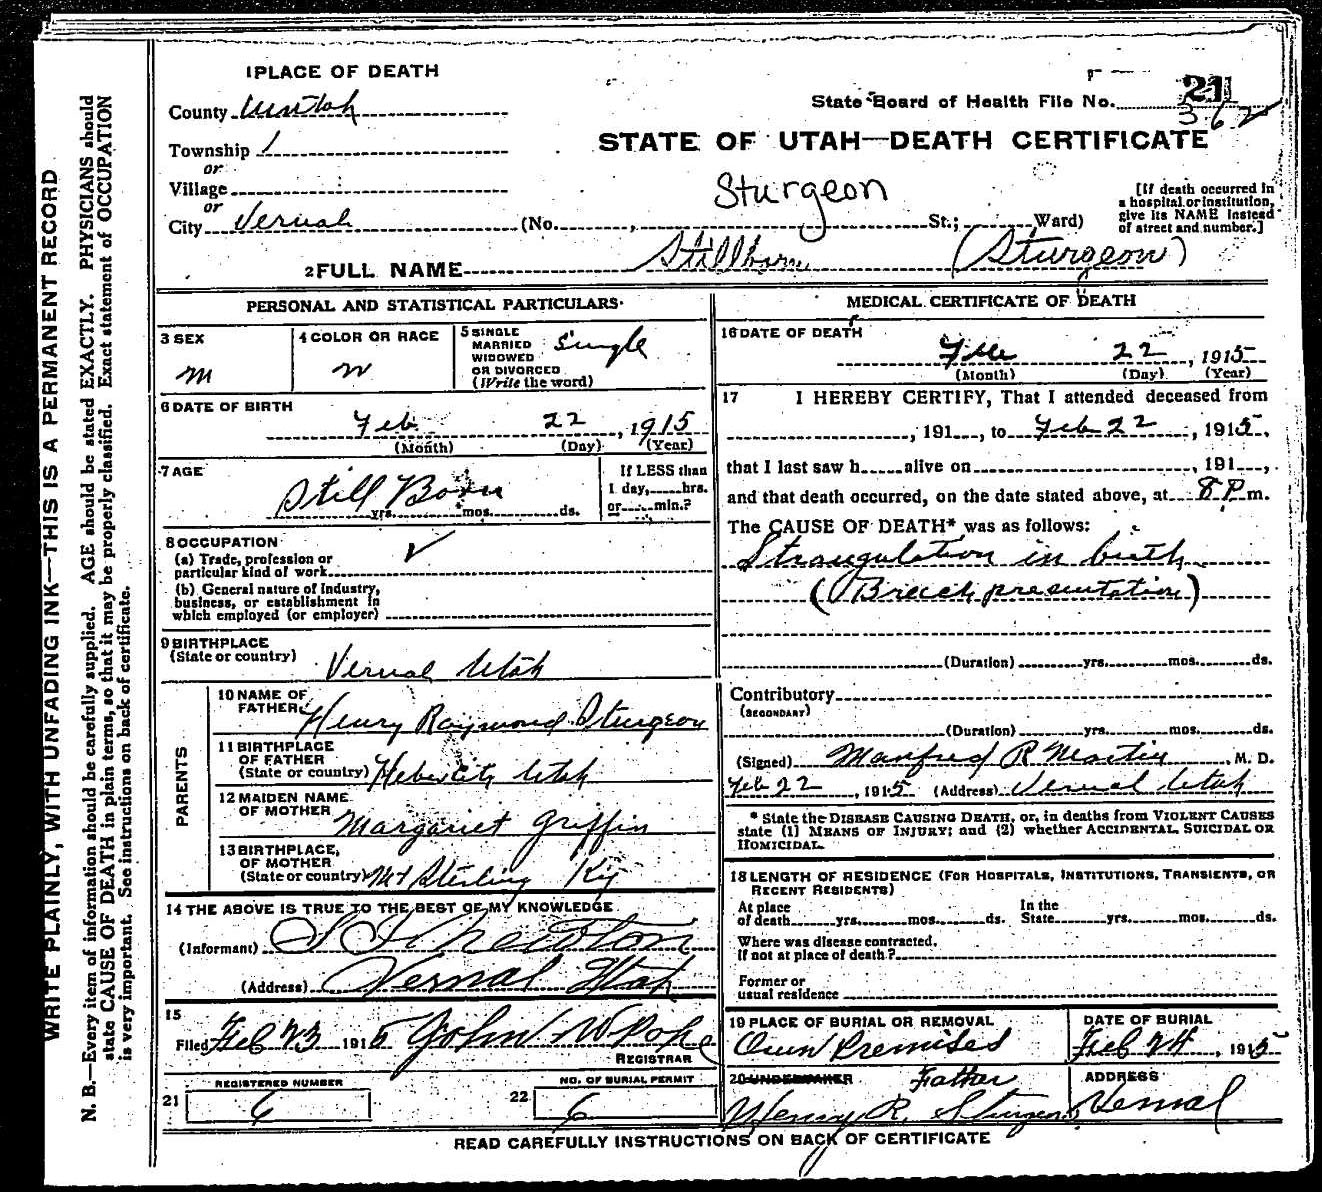 WRITE PLAINLY, WITH UNFADING INK—THIS IS A PERMANENT RECORD
N. B.—Every item of information should be carefully supplied. AGE should be stated EXACTLY. PHYSICIANS should
state CAUSE OF DEATH in plain terms, so that it may be properly classified. Exact statement of OCCUPATION
is very important. See instructions on back of certificate.
1 PLACE OF DEATH
County Uintah
Township 1
or
Village
or
City Vernal (No. , St.; Ward)
State Board of Health File No. 21
362
STATE OF UTAH—DEATH CERTIFICATE
Sturgeon
[If death occurred in
a hospital or institution,
give its NAME instead
of street and number.]
2 FULL NAME Stillborn (Sturgeon)
PERSONAL AND STATISTICAL PARTICULARS
3 SEX
m
4 COLOR OR RACE
w
5 SINGLE
MARRIED
WIDOWED
OR DIVORCED
(Write the word)
Single
6 DATE OF BIRTH
Feb 22, 1915
(Month) (Day) (Year)
7 AGE
Still Born
yrs. mos. ds.
If LESS than
1 day, hrs.
or min.?
8 OCCUPATION
(a) Trade, profession or
particular kind of work
(b) General nature of industry,
business, or establishment in
which employed (or employer)
9 BIRTHPLACE
(State or country) Vernal Utah
PARENTS
10 NAME OF
FATHER Henry Raymond Sturgeon
11 BIRTHPLACE
OF FATHER
(State or country) Heber City Utah
12 MAIDEN NAME
OF MOTHER Margaret Griffin
13 BIRTHPLACE,
OF MOTHER
(State or country) Mt Sterling Ky
14 THE ABOVE IS TRUE TO THE BEST OF MY KNOWLEDGE
(Informant)
(Address) Vernal Utah
15
Filed Feb 23 1915 John W Pope
REGISTRAR
REGISTERED NUMBER
21 6
NO. OF BURIAL PERMIT
22 6
MEDICAL CERTIFICATE OF DEATH
16 DATE OF DEATH
22, 1915
(Month) (Day) (Year)
17 I HEREBY CERTIFY, That I attended deceased from
, 191 , to Feb 22, 1915,
that I last saw h alive on , 191 ,
and that death occurred, on the date stated above, at 8 P m.
The CAUSE OF DEATH* was as follows:
Strangulation in birth
(Breech presentation)
(Duration) yrs. mos. ds.
Contributory
(SECONDARY)
(Duration) yrs. mos. ds.
(Signed) Manfred R Martin, M. D.
Feb 22, 1915 (Address) Vernal Utah
* State the DISEASE CAUSING DEATH, or, in deaths from VIOLENT CAUSES
state (1) MEANS OF INJURY; and (2) whether ACCIDENTAL, SUICIDAL OR
HOMICIDAL.
18 LENGTH OF RESIDENCE (FOR HOSPITALS, INSTITUTIONS, TRANSIENTS, OR
RECENT RESIDENTS)
At place
of death yrs. mos. ds.
In the
State yrs. mos. ds.
Where was disease contracted,
if not at place of death?
Former or
usual residence
19 PLACE OF BURIAL OR REMOVAL
Own Premises
DATE OF BURIAL
Feb 24, 1915
20 UNDERTAKER Father
Henry R. Sturgeon
ADDRESS
Vernal
READ CAREFULLY INSTRUCTIONS ON BACK OF CERTIFICATE